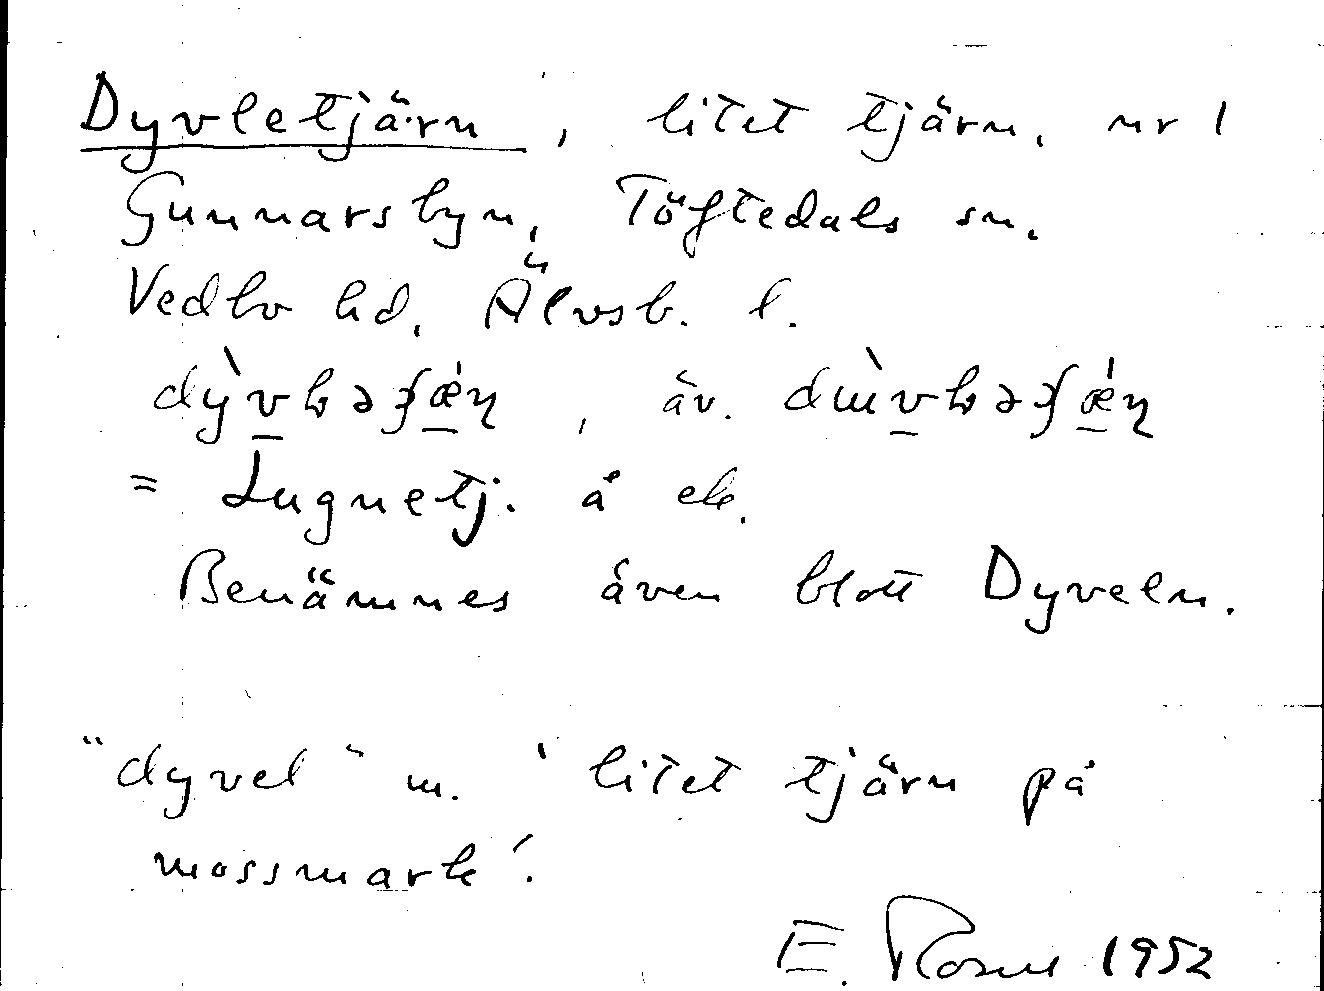 Dyvletjärn, litet tjärn, nr 1
Gunnarsbyn, Töftedals sn.
Vedbo hd, Älvsb. l.
, äv.
= Lugnetj. å ek.
Benämnes även blott Dyveln.
"dyvel" m. 'litet tjärn på
mossmark'.
E. Rosell 1952